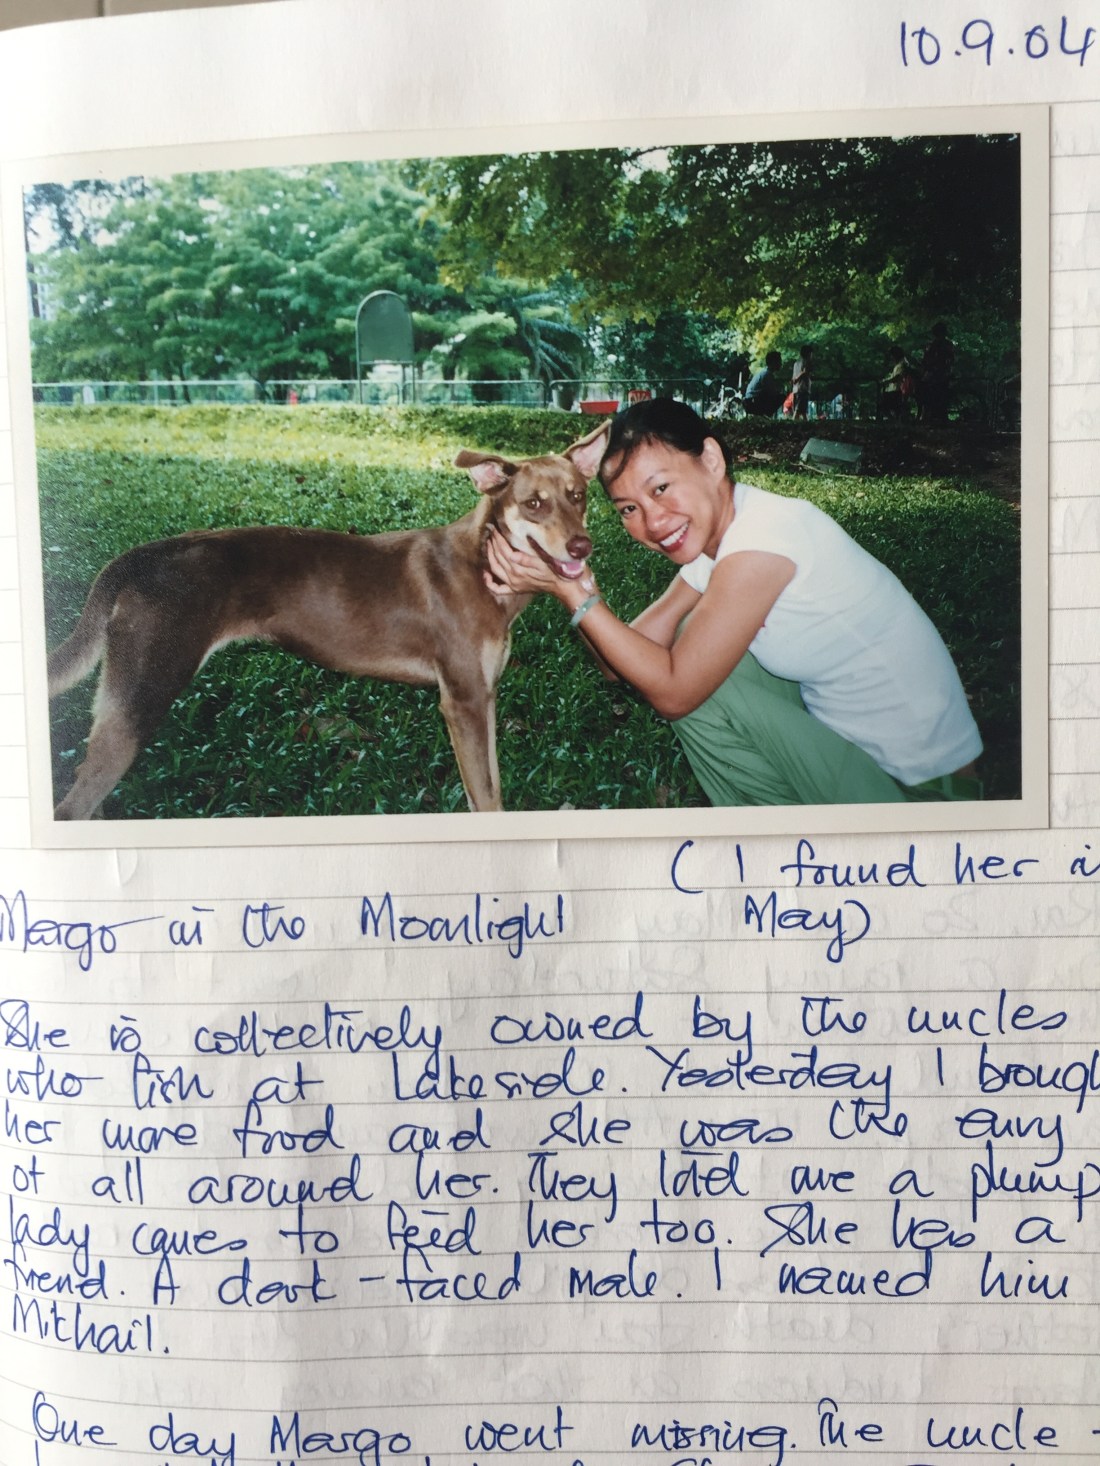 10.9.04
( I found her in
Margo in the Moonlight May)
She is collectively owned by the uncles
who fish at Lakeside. Yesterday I brough
her more food and she was the envy
of all around her. They told me a plump
lady comes to feed her too. She has a
friend. A dark-faced male. I named him
Mikhail.
One day Margo went missing. The uncle -